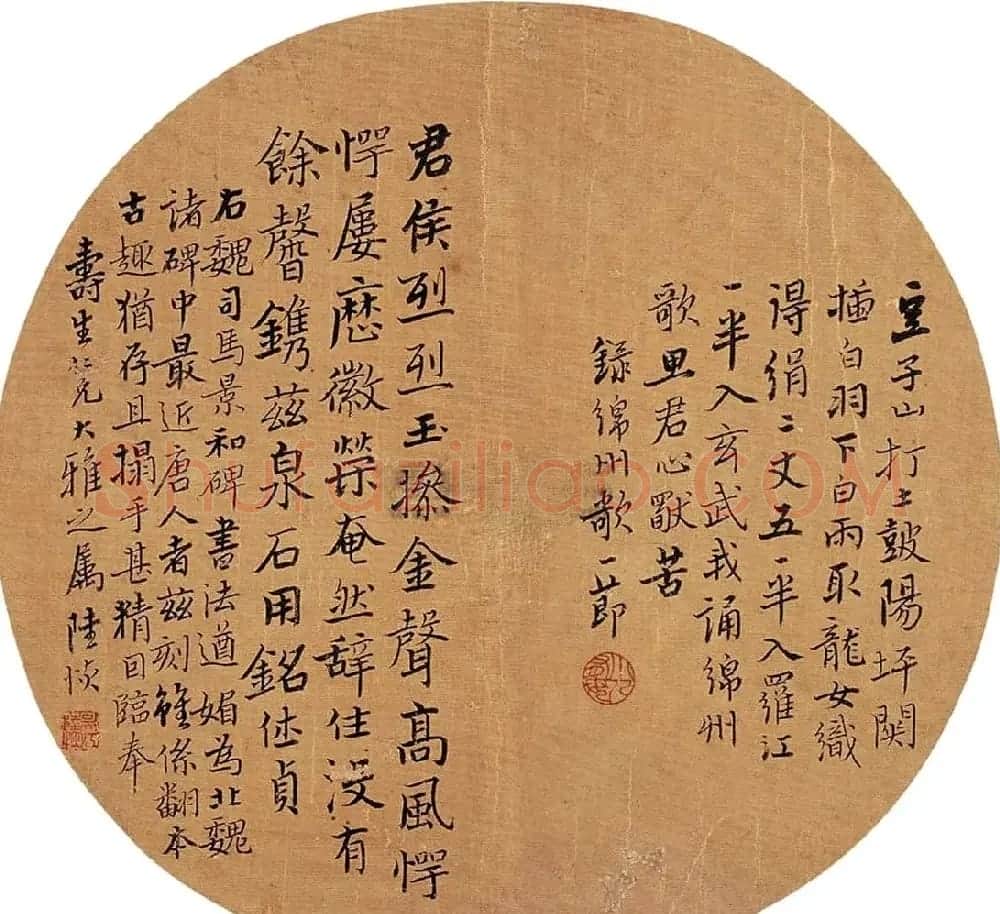 豆子山打土皷陽坪關
插白羽下白雨取龍女織
得絹二丈五一半入羅江
一半入玄武我誦綿州
歌思君心獨苦
錄綿州歌一節
君侯烈烈玉摻金聲高風愕
愕屢歷徽榮奄然辭住没有
餘馨鐫茲泉石用銘休貞
右魏司馬景和碑書法遒媚為北魏
諸碑中最近唐人者茲刻雖係翻本
古趣猶存且搨手甚精回臨奉
壽生仁兄大雅之屬陸恢
Shufaziliao.COM